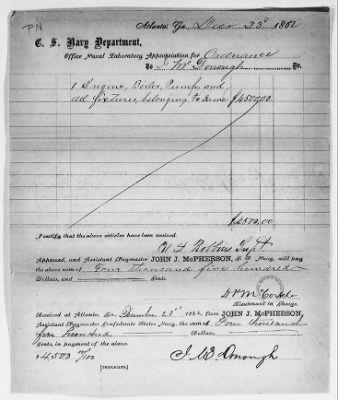 PN
Atlanta, Ga, Decr 23d 1862
C. S. Navy Department,
Office Naval Laboratory Appropriation for Ordnance
To J. McDonough Dr.
1 Engine, Boiler, Pumps and
all fixtures, belonging to same $4500,00
$4500.00
I certify that the above articles have been received.
Supt
Approved, and Assistant Paymaster JOHN J. McPHERSON, C. S. Navy, will pay
the above sum of Four thousand five hundred
Dollars, and Cents.
D. P. McCorkle
Lieutenant in Charge.
Received at Atlanta, Ga. December 23d 1862, from JOHN J. McPHERSON,
Assistant Paymaster Confederate States Navy, the sum of Four thousand
five hundred Dollars
Cents, in payment of the above
$4,500 00/100 J. McDonough
[TRIPLICATE.]